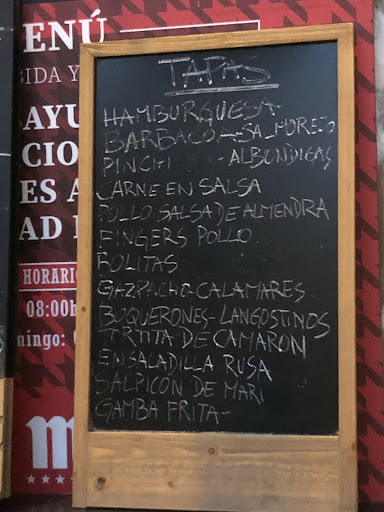 ENÚ
BIDA Y
AYU
CIO
ES A
AD
HORARIO
08:00h
mingo:
TAPAS
HAMBURGUESA-
BARBACOA-SALMOREJO
PINCHI - ALBONDIGAS
CARNE EN SALSA
POLLO SALSA DE ALMENDRA
FINGERS POLLO
BOLITAS
GAZPACHO-CALAMARES
BOQUERONES-LANGOSTINOS
TRTITA DE CAMARON
ENSALADILLA RUSA
SALPICON DE MARI
GAMBA FRITA-